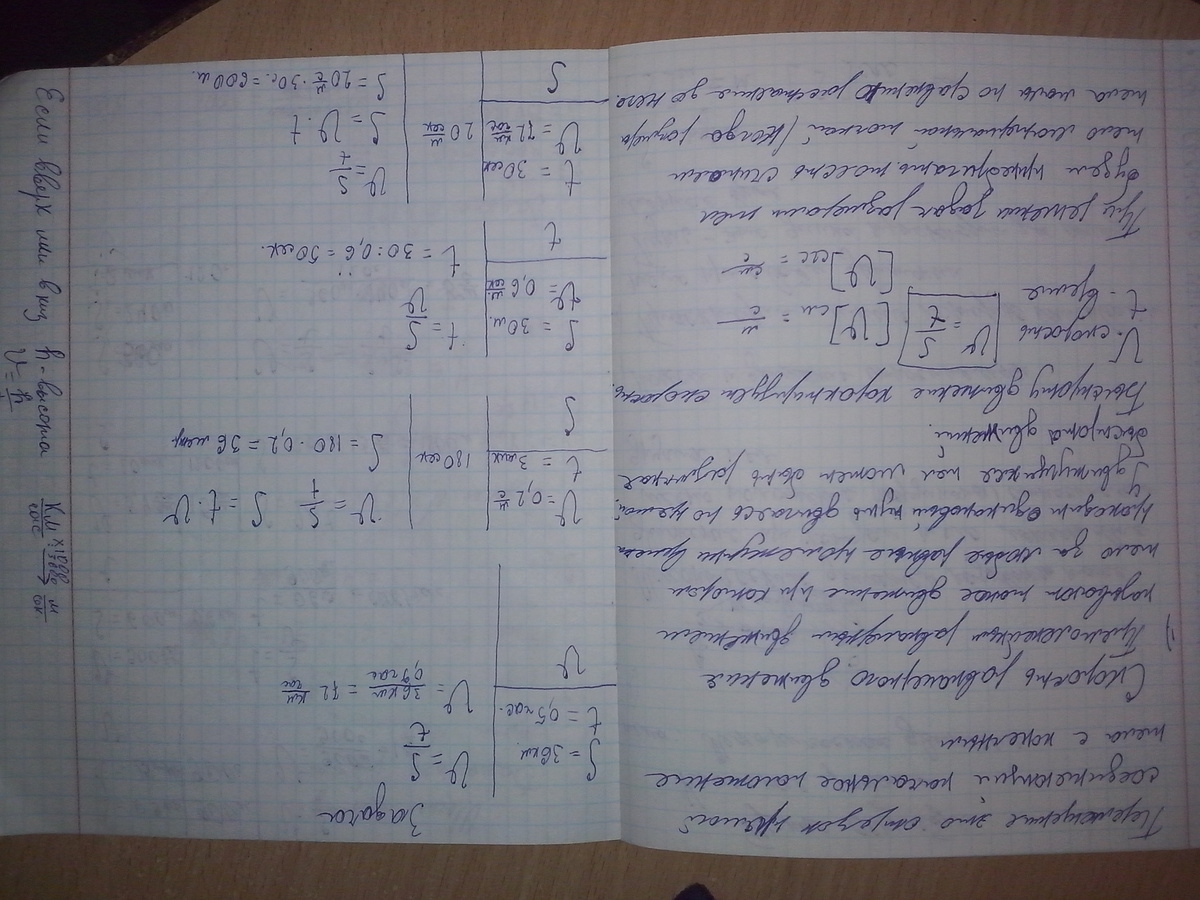 Перемещение это отрезок прямой
соединяющий начальное положение
тела с конечным
Скорость равномерного движения
равномерным движением
называют такое движение при котором
тело за любые равные промежутки времени
проходит одинаковый путь двигаясь по прямой.
У движущихся тел может быть различная
быстрота движения.
Быстроту движения скорость.
V - скорость
t - время
V = S/t
[V] си = м/с
[V] сгс = см/с
При решении задач размерами тел
будем пренебрегать то есть считаем
тело материальной точкой (когда размеры
тела малы по сравнению расстояние до него.
Задача
S = 36 км
t = 0,5 час.
V
V = S/t
V = 36 км/0,5 час = 72 км/час
V = 0,2 м/с
t = 3 мин
180 сек
S
V = S/t S = t · V
S = 180 · 0,2 = 36 метр
S = 30 м.
V = 0,6 м/сек
t
t = S/V
t = 30 : 0,6 = 50 сек.
t = 30 сек
V = 72 км/час
20 м/сек
S
V = S/t
S = V · t
S = 20 м/с · 30 с. = 600 м.
Если вверх или вниз h - высота
V = h/t
км/час x 1000 м/сек